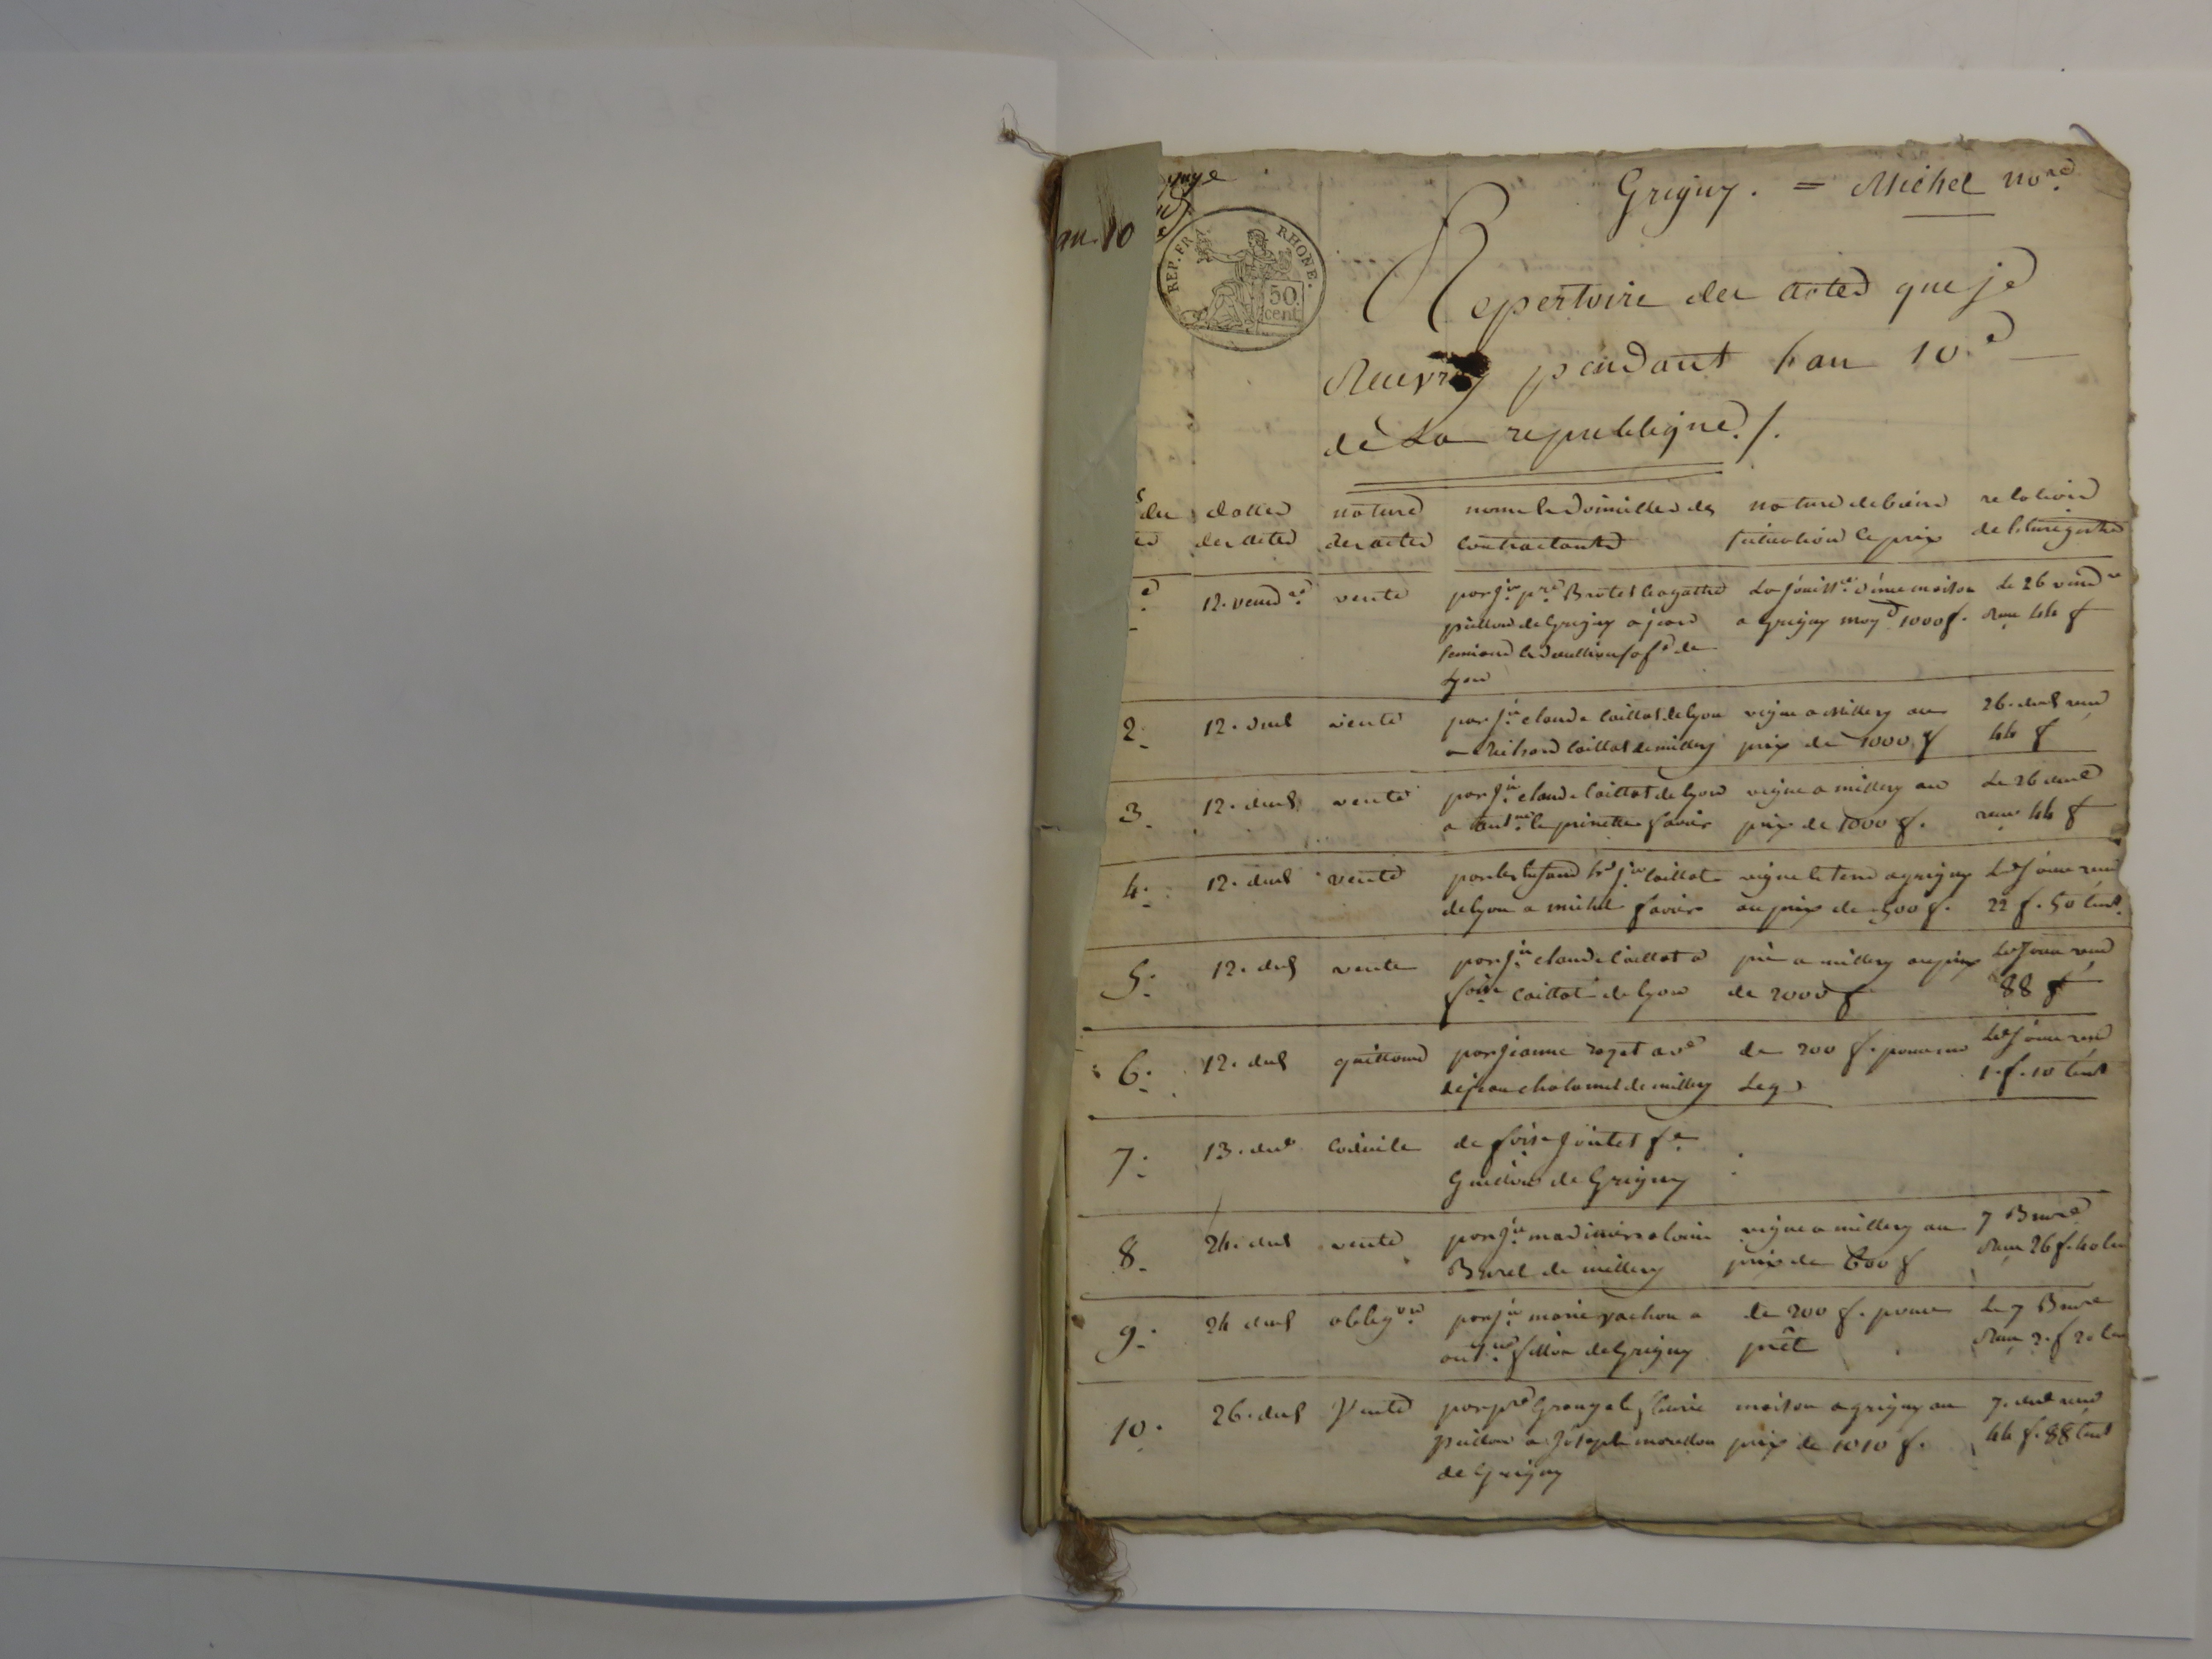 Grigny. = Michel no.re
an. 10
REP. FRA RHONE.
50.
cent
Repertoire des actes que je
Recevray pendant l'an 10.e
de La republique./.
des dattes nature noms & domicilles des nature des biens relation
des actes des actes contractants situation & prix de l'enregistré
12. vend.re vente par j.n p.re Brotet & agathe La jouiss.ce d'une maison Le 26 vend.re
puillon de Grigny a jean a Grigny moy.t 1000 f. Reçu 44 f
de
Lyon
2. 12. dud vente par j.n claude Caillot de Lyon vigne a Millery au 26. dud reçu
a Richard Caillot de millery prix de 1000 f 44 f
3. 12. dud vente par j.n claude Caillot de Lyon vigne a millery au Le 26 dud
a ant.ne & pierrette favier prix de 1000 f. reçu 44 f
4. 12. dud vente par j.n Caillot vigne & terre a grigny Led. jour reçu
de Lyon a michel favier au prix de 500 f. 22 f. 50 cent.
5. 12. dud vente par j.n claude Caillot a pré a millery au prix Led. jour reçu
f.oise Caillot de Lyon de 2000 f 88 f
6. 12. dud quittance par jeanne rozet a v.e de 200 f. pour un Led. jour reçu
de jean de millery Legs 1. f. 10 cent
7. 13. dud Codicile de f.oise Jontet f.e
Guidon de Grigny
8. 24. dud vente par j.n vigne a millery au 7 Brum.e
Burel de millery prix de 600 f Reçu 26 f. 40 cen
9. 24 dud oblig.on par j.n marie vachon a de 200 f. pour Le 7 Brum.e
ant.ne fillon de Grigny prêt Reçu 2. f 20 cen
10. 26. dud Vente par p.re Grange & fleurie maison a grigny au 7. dud reçu
puillon a Joseph prix de 1010 f. 44 f. 88 cent
de Grigny